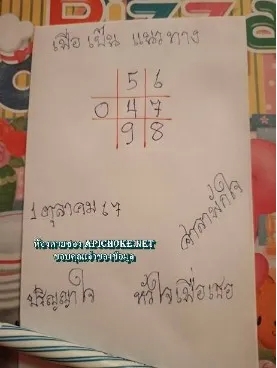 เพื่อเป็น แนวทาง
5 6
0 4 7
9 8
1 ตุลาคม 67
ศาลาพักใจ
ห้องลายซอง APICHOKE.NET
ขอบคุณเจ้าของข้อมูล
ปริญญาใจ
หัวใจเพื่อเธอ